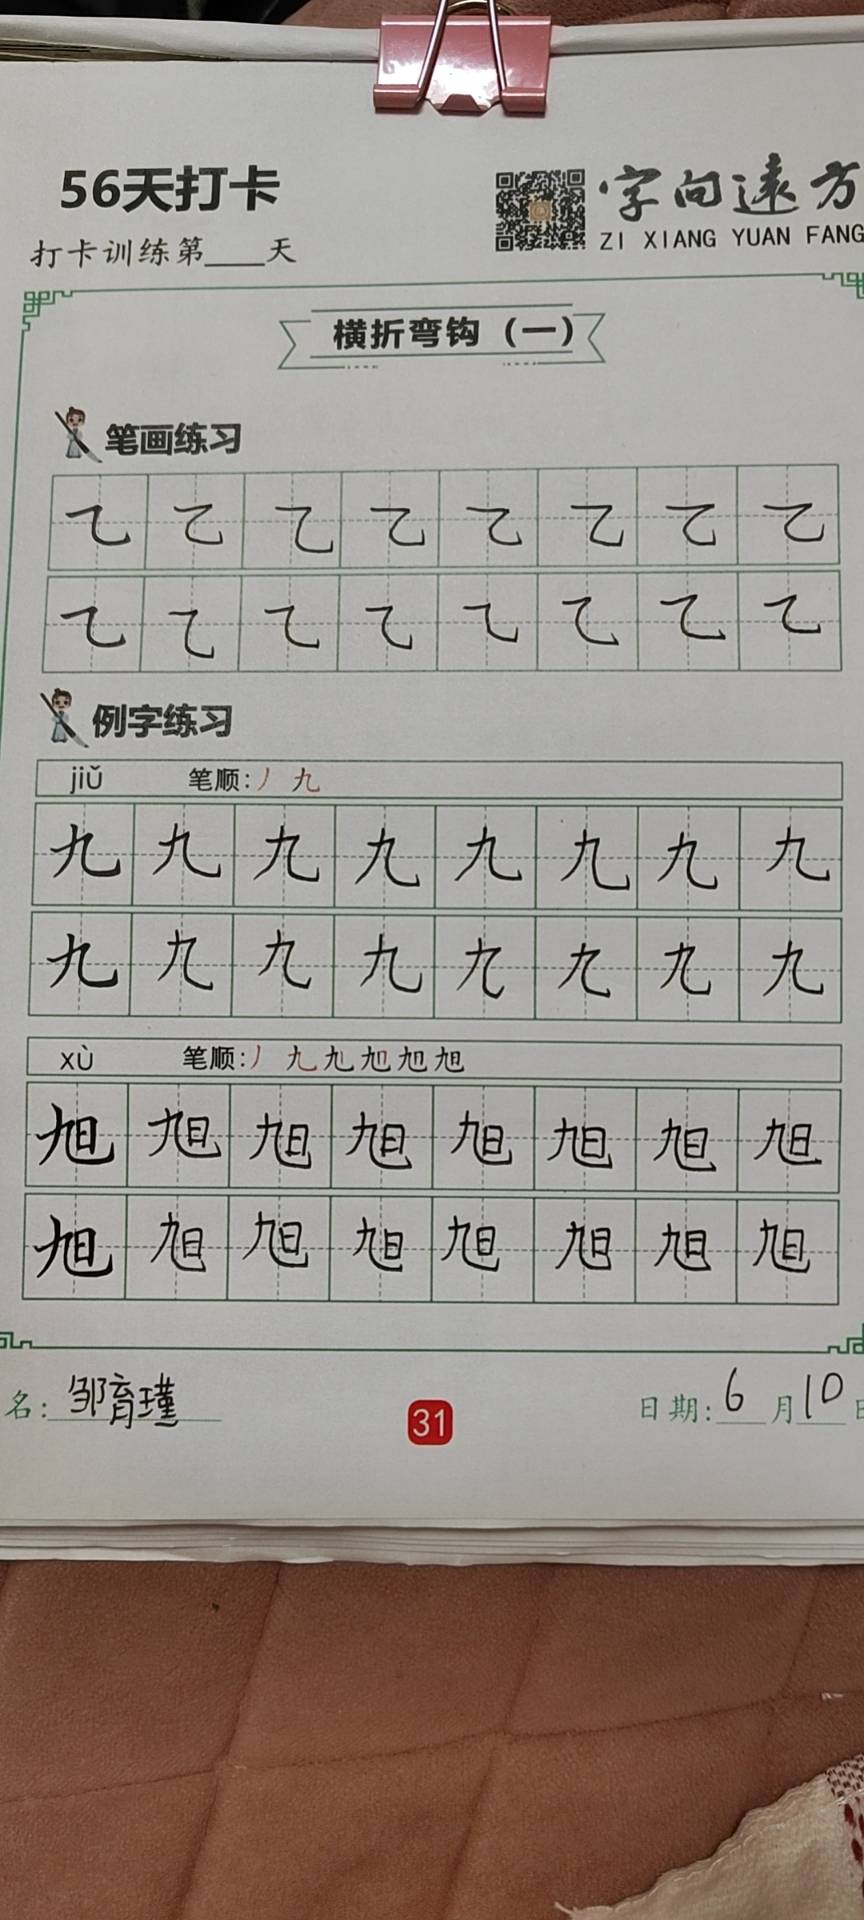 56天打卡
打卡训练第____天
字向遠方
ZI XIANG YUAN FANG
横折弯钩（一）
笔画练习
㇈ ㇈ ㇈ ㇈ ㇈ ㇈ ㇈ ㇈
㇈ ㇈ ㇈ ㇈ ㇈ ㇈ ㇈ ㇈
例字练习
jiǔ 笔顺:丿 九
九 九 九 九 九 九 九 九
九 九 九 九 九 九 九 九
xù 笔顺:丿 九 旭 旭 旭 旭
旭 旭 旭 旭 旭 旭 旭 旭
旭 旭 旭 旭 旭 旭 旭 旭
名: 邹育瑾
31
日期: 6 月 10 日